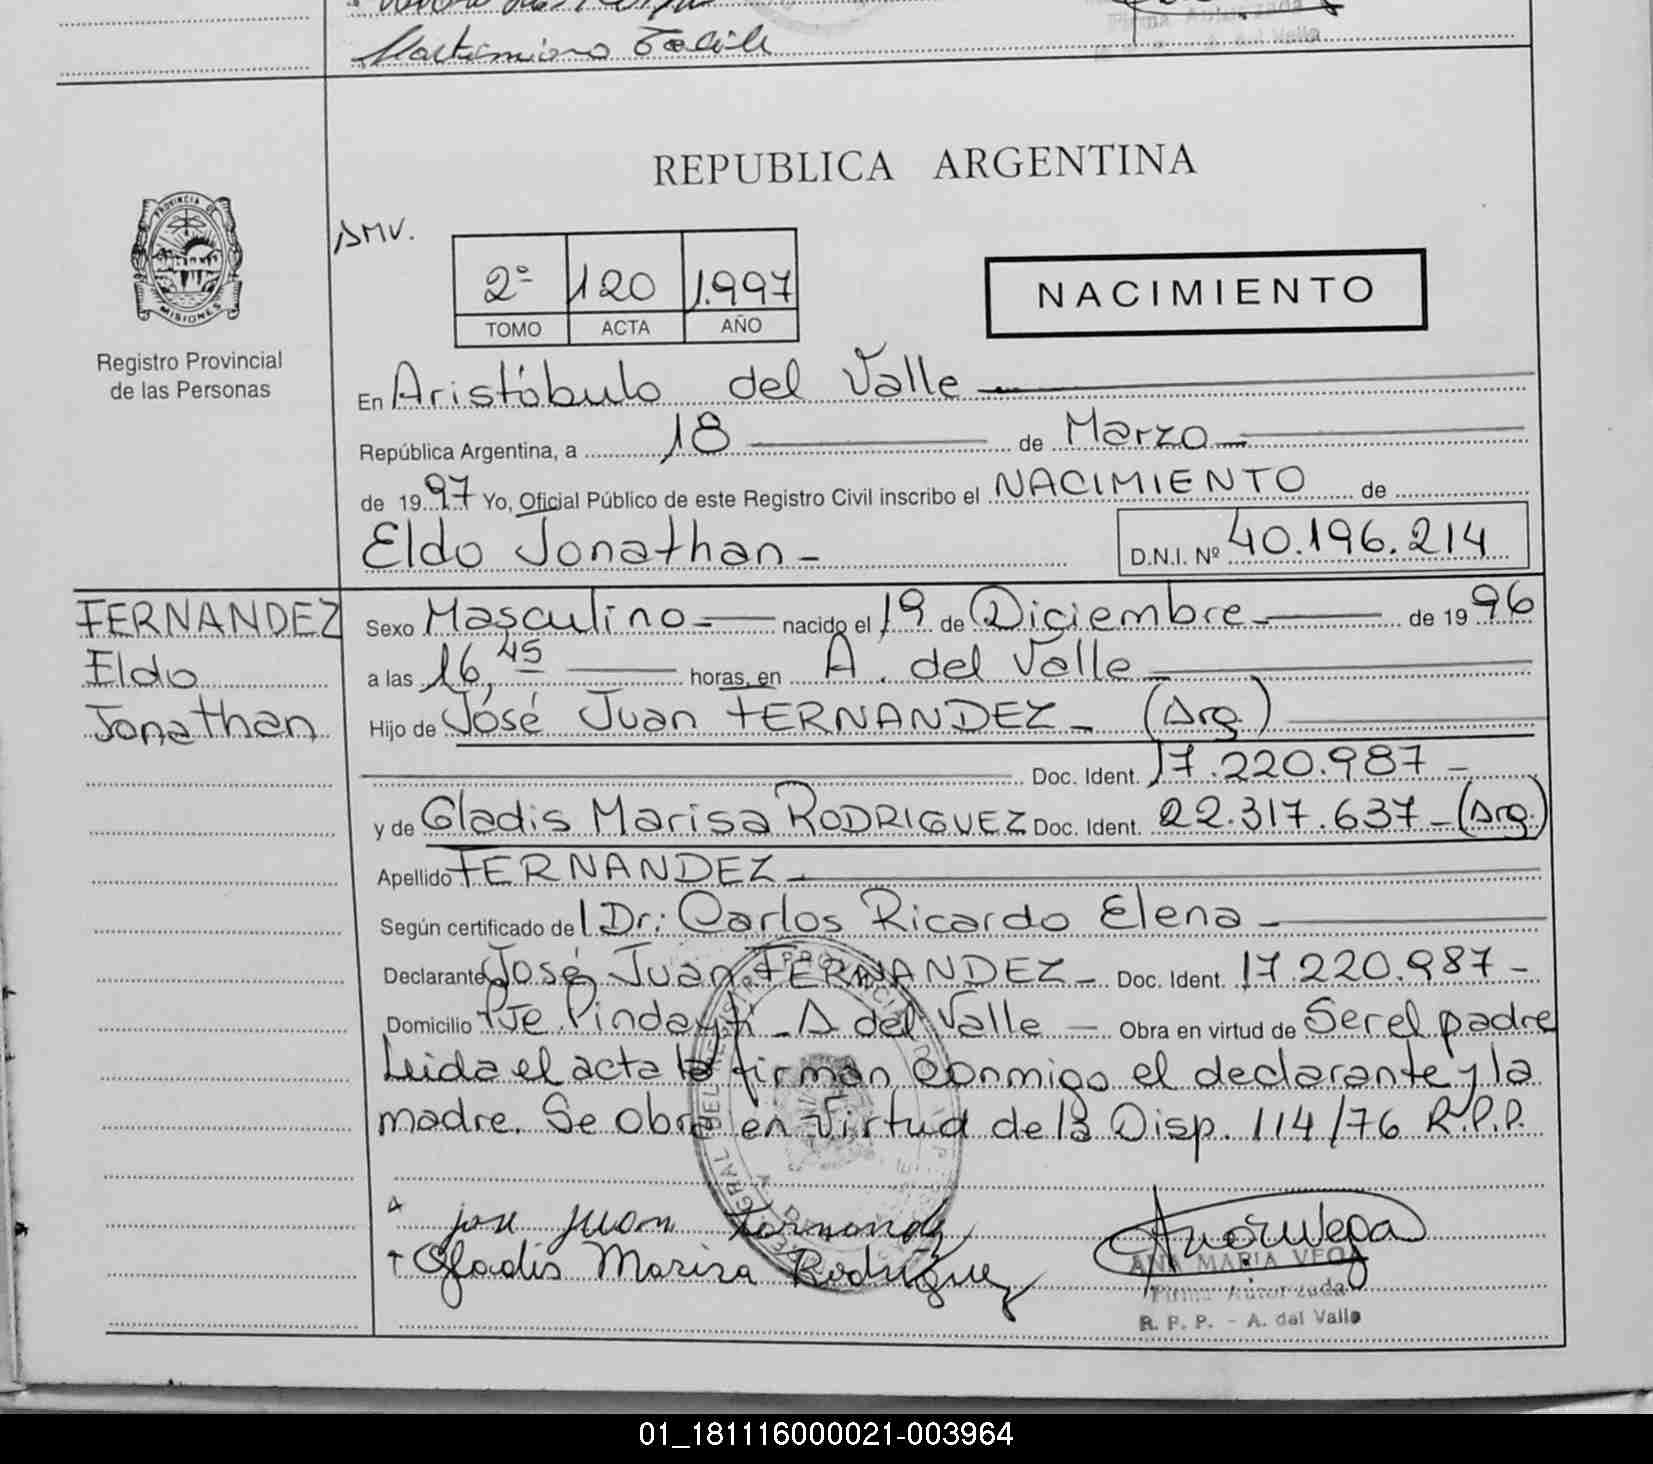 Maximiano
Firma Autorizada
A. del Valle
REPUBLICA ARGENTINA
PROVINCIA DE
MISIONES
Registro Provincial
de las Personas
AMV.
2º 120 1.997
TOMO ACTA AÑO
NACIMIENTO
En Aristóbulo del Valle
República Argentina, a 18 de Marzo
de 1997 Yo, Oficial Público de este Registro Civil inscribo el NACIMIENTO de
Eldo Jonathan - D.N.I. Nº 40.196.214
FERNANDEZ
Eldo
Jonathan
Sexo Masculino nacido el 19 de Diciembre de 1996
a las 16,45 horas, en A. del Valle
Hijo de José Juan FERNANDEZ - (Arg.)
Doc. Ident. 17.220.987 -
y de Gladis Marisa RODRIGUEZ Doc. Ident. 22.317.637 - (Arg.)
Apellido FERNANDEZ -
Según certificado del Dr: Carlos Ricardo Elena -
Declarante José Juan FERNANDEZ - Doc. Ident. 17.220.987 -
Domicilio Pje Pindaytí - A del Valle - Obra en virtud de Ser el padre
Leida el acta la firman conmigo el declarante y la
madre. Se obra en virtud de la Disp. 114/76 R.P.P.
jose juan Fernandez
Gladis Marisa Rodriguez
ANA MARIA VEGA
Firma Autorizada
R. P. P. - A. del Valle
01_181116000021-003964